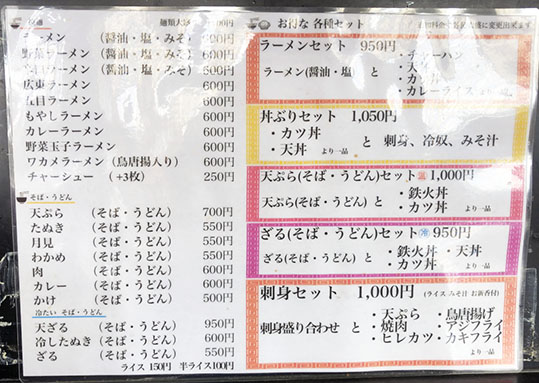 麺類
ラーメン (醤油・塩・みそ)
野菜ラーメン (醤油・塩・みそ) 600円
(醤油・塩・みそ) 600円
広東ラーメン 600円
五目ラーメン 600円
もやしラーメン 600円
カレーラーメン 600円
野菜玉子ラーメン 600円
ワカメラーメン (鳥唐揚入り) 600円
チャーシュー (+3枚) 250円
そば・うどん
天ぷら (そば・うどん) 700円
たぬき (そば・うどん) 550円
月見 (そば・うどん) 550円
わかめ (そば・うどん) 550円
肉 (そば・うどん) 600円
カレー (そば・うどん) 600円
かけ (そば・うどん) 500円
冷たい そば・うどん
天ざる (そば・うどん) 950円
冷したぬき (そば・うどん) 600円
ざる (そば・うどん) 550円
ライス 150円 半ライス100円
お得な 各種セット
に変更出来ます。
ラーメンセット 950円
ラーメン(醤油・塩) と
・チャーハン
・天丼
・カツ丼
・カレーライス
丼ぶりセット 1,050円
・カツ丼
・天丼 より一品
と 刺身、冷奴、みそ汁
天ぷら(そば・うどん)セット 1,000円
天ぷら(そば・うどん) と
・鉄火丼
・カツ丼 より一品
ざる(そば・うどん)セット 950円
ざる(そば・うどん) と
・鉄火丼 ・天丼
・カツ丼 より一品
刺身セット 1,000円 (ライス みそ汁 お新香付)
刺身盛り合わせ と
・天ぷら ・鳥唐揚げ
・焼肉 ・アジフライ
・ヒレカツ ・カキフライ
より一品